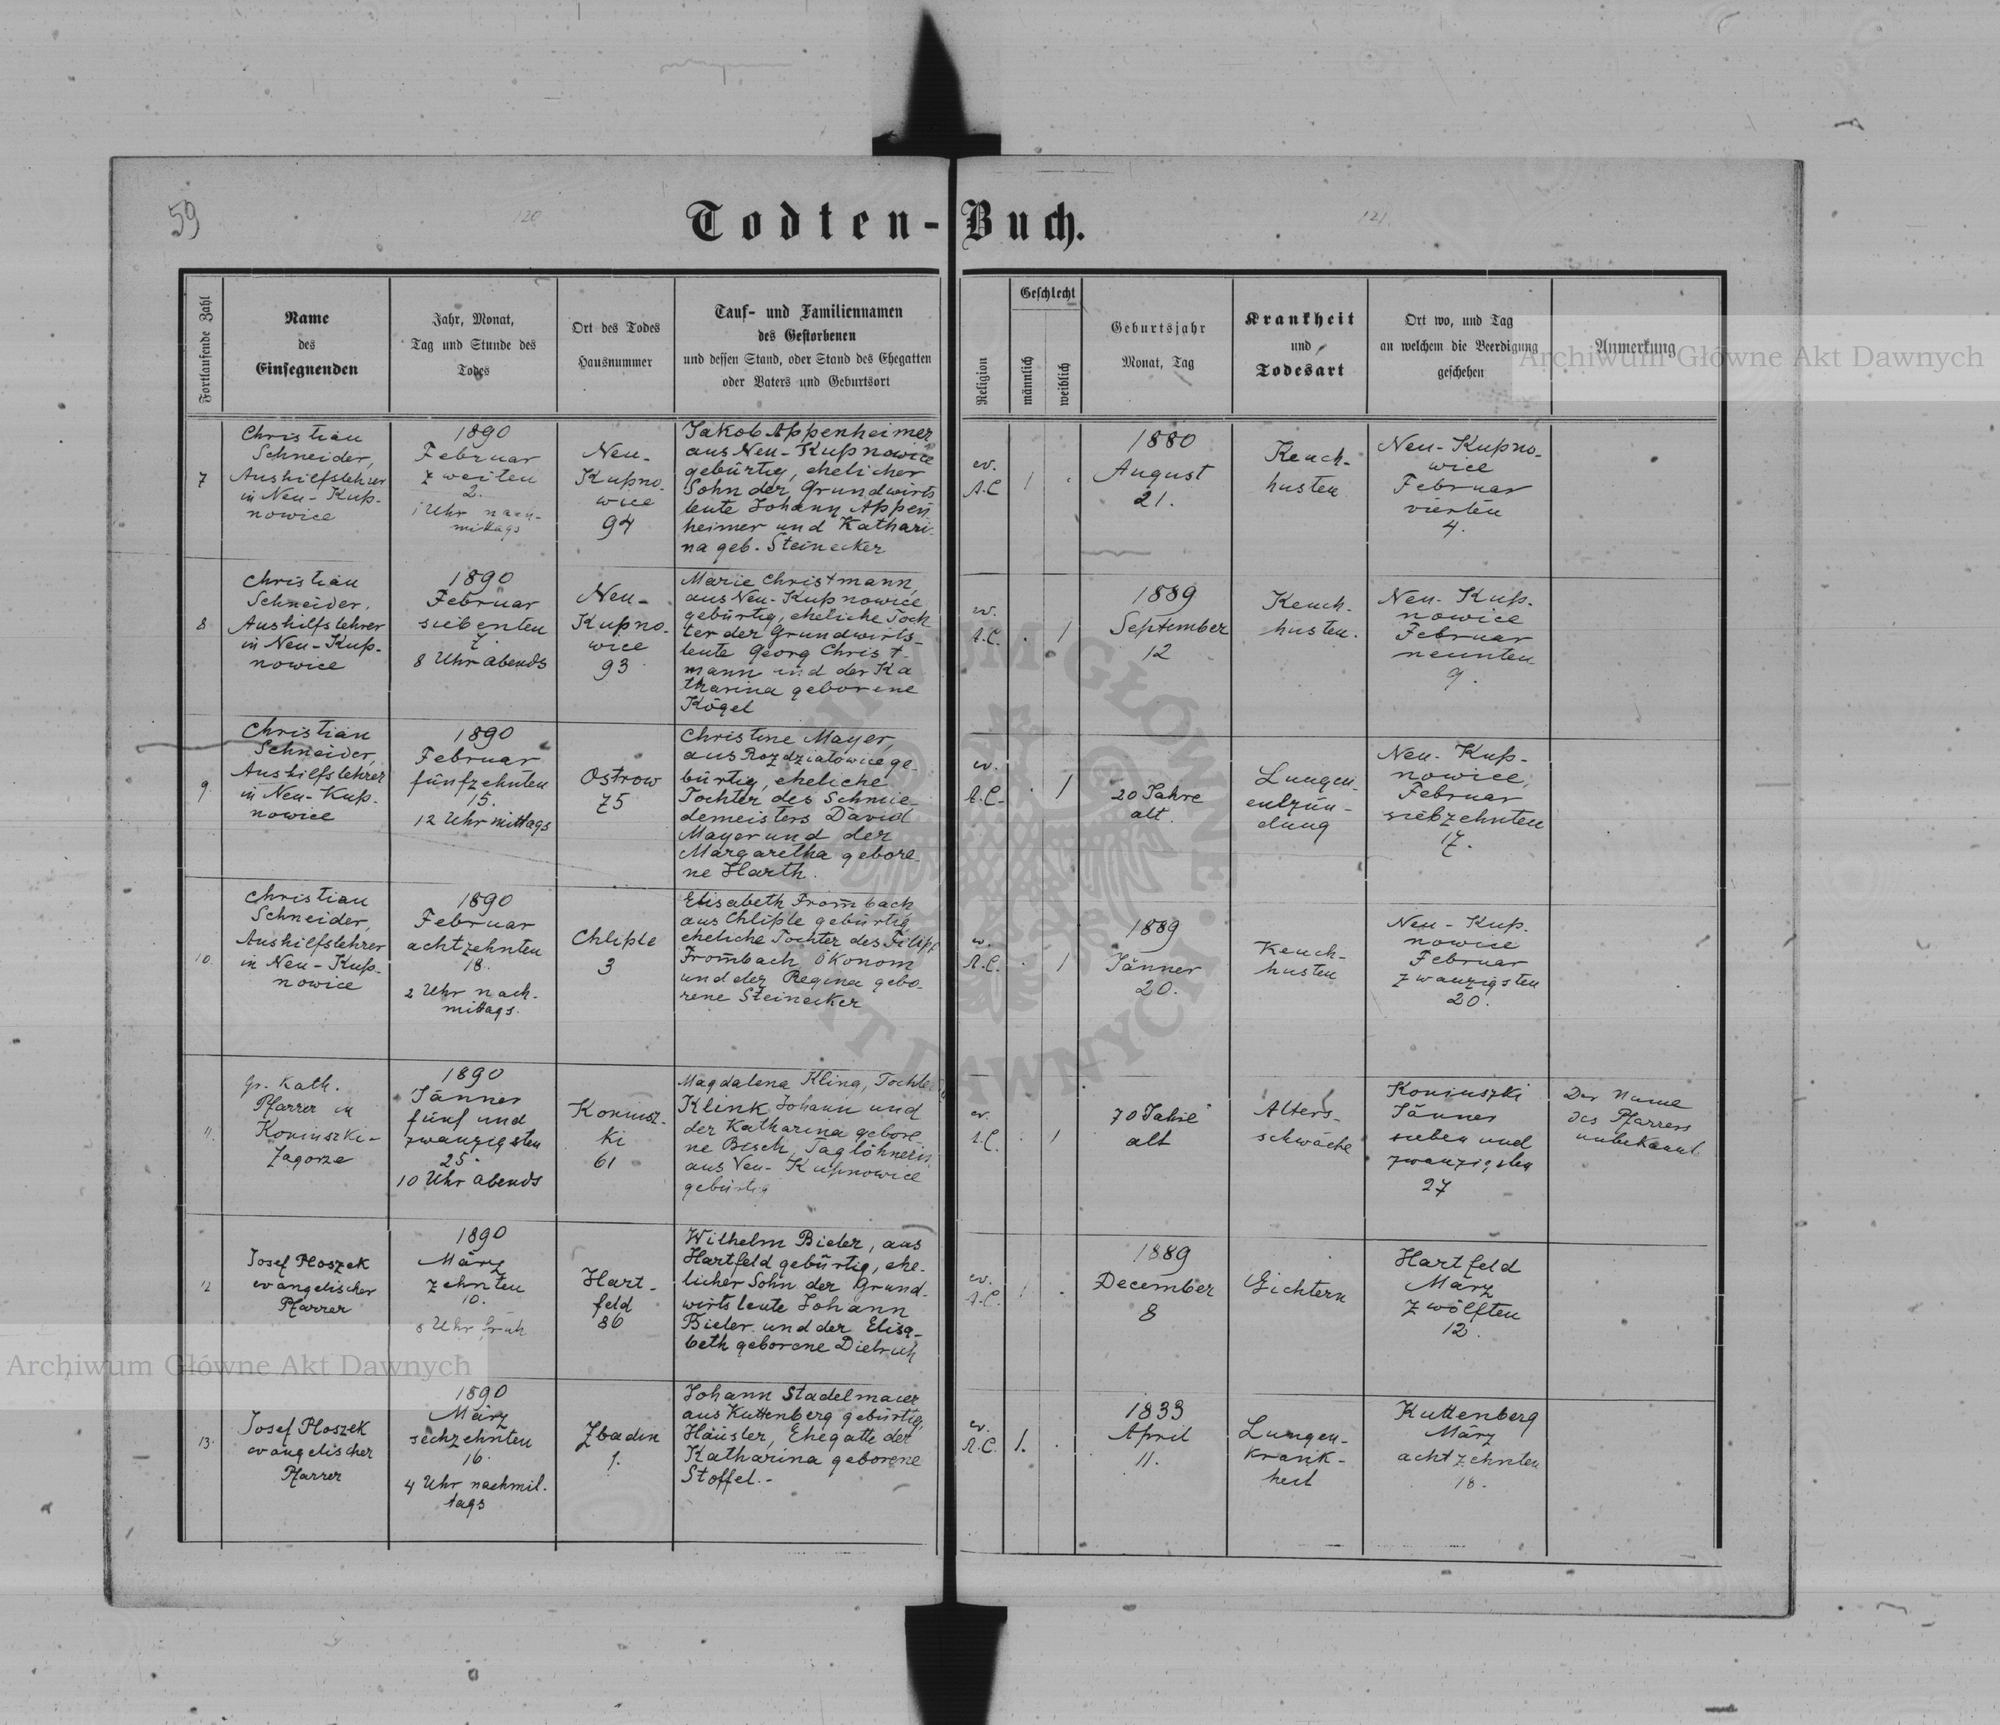 59
120
Todten-Buch.
121
Fortlaufende Zahl
Name
des
Einsegnenden
Jahr, Monat,
Tag und Stunde des
Todes
Ort des Todes
Hausnummer
Tauf- und Familiennamen
des Gestorbenen
und dessen Stand, oder Stand des Ehegatten
oder Vaters und Geburtsort
Religion
Geschlecht
männlich
weiblich
Geburtsjahr
Monat, Tag
Krankheit
und
Todesart
Ort wo, und Tag
an welchem die Beerdigung
geschehen
Anmerkung
7
Christian
Schneider,
Aushilfslehrer
in Neu-Kup-
nowice
1890
Februar
zweiten
2.
1 Uhr nach-
mittags
Neu-
Kupno-
wice
94
Jakob Appenheimer
aus Neu-Kupnowice
gebürtig, ehelicher
Sohn der Grundwirts
leute Johann Appen
heimer und Kathari-
na geb. Steinecker
ev.
A.C
1
.
1880
August
21.
Keuch-
husten
Neu-Kupno-
wice
Februar
vierten
4.
8
Christian
Schneider,
Aushilfslehrer
in Neu-Kup-
nowice
1890
Februar
siebenten
7.
8 Uhr abends
Neu-
Kupno-
wice
93
Marie Christmann,
aus Neu-Kupnowice
gebürtig, eheliche Toch
ter der Grundwirts-
leute Georg Christ-
mann und der Ka
tharina geborene
Kögel
ev.
A.C.
.
1
1889
September
12
Keuch-
husten.
Neu-Kup-
nowice
Februar
neunten
9.
9
Christian
Schneider,
Aushilfslehrer
in Neu-Kup-
nowice
1890
Februar
fünfzehnten
15.
12 Uhr mittags
Ostrow
75
Christine Mayer,
aus Rozdzialowice ge-
bürtig, eheliche
Tochter des Schmie-
demeisters David
Mayer und der
Margaretha gebore-
ne Harth.
ev.
A.C.
.
1
20 Jahre
alt.
Lungen-
entzün-
dung
Neu-Kup-
nowice,
Februar
siebzehnten
17.
10.
Christian
Schneider,
Aushilfslehrer
in Neu-Kup-
nowice
1890
Februar
achtzehnten
18.
2 Uhr nach-
mittags.
Chliple
3
Elisabeth Frombach
aus Chliple gebürtig
eheliche Tochter des Filipp
Frombach, Ökonom
und der Regina gebo-
rene Steinecker
ev.
A.C.
.
1
1889
Jänner
20.
Keuch-
husten
Neu-Kup-
nowice
Februar
zwanzigsten
20.
11.
Gr. Kath.
Pfarrer in
Koniuszki-
Zagorze
1890
Jänner
fünf und
zwanzigsten
25.
10 Uhr abends
Koniusz-
ki
61
Magdalena Kling, Tochter
Klink Johann und
der Katharina gebore
ne Besch, Taglöhnerin,
aus Neu-Kupnowice
gebürtig
ev.
A.C.
.
1
70 Jahre
alt
Alters-
schwäche
Koniuszki
Jänner
sieben und
zwanzigsten
27
Der Name
des Pfarrers
unbekannt
12
Josef Ploszek
evangelischer
Pfarrer
1890
März
zehnten
10.
8 Uhr früh
Hart-
feld
86
Wilhelm Bieler, aus
Hartfeld gebürtig, ehe-
licher Sohn der Grund-
wirtsleute Johann
Bieler und der Elisa-
beth geborene Dietrich
ev.
A.C.
1
.
1889
December
8
Gichtern
Hartfeld
März
zwölften
12.
13.
Josef Ploszek
evangelischer
Pfarrer
1890
März
sechzehnten
16.
4 Uhr nachmit-
tags
Zbadin
1.
Johann Stadelmaier
aus Kuttenberg gebürtig,
Häusler, Ehegatte der
Katharina geborene
Stoffel.-
ev.
A.C.
1.
.
1833
April
11.
Lungen-
krank-
heit
Kuttenberg
März
achtzehnten
18.
Archiwum Główne Akt Dawnych
Archiwum Główne Akt Dawnych
ARCHIWUM GŁÓWNE AKT DAWNYCH